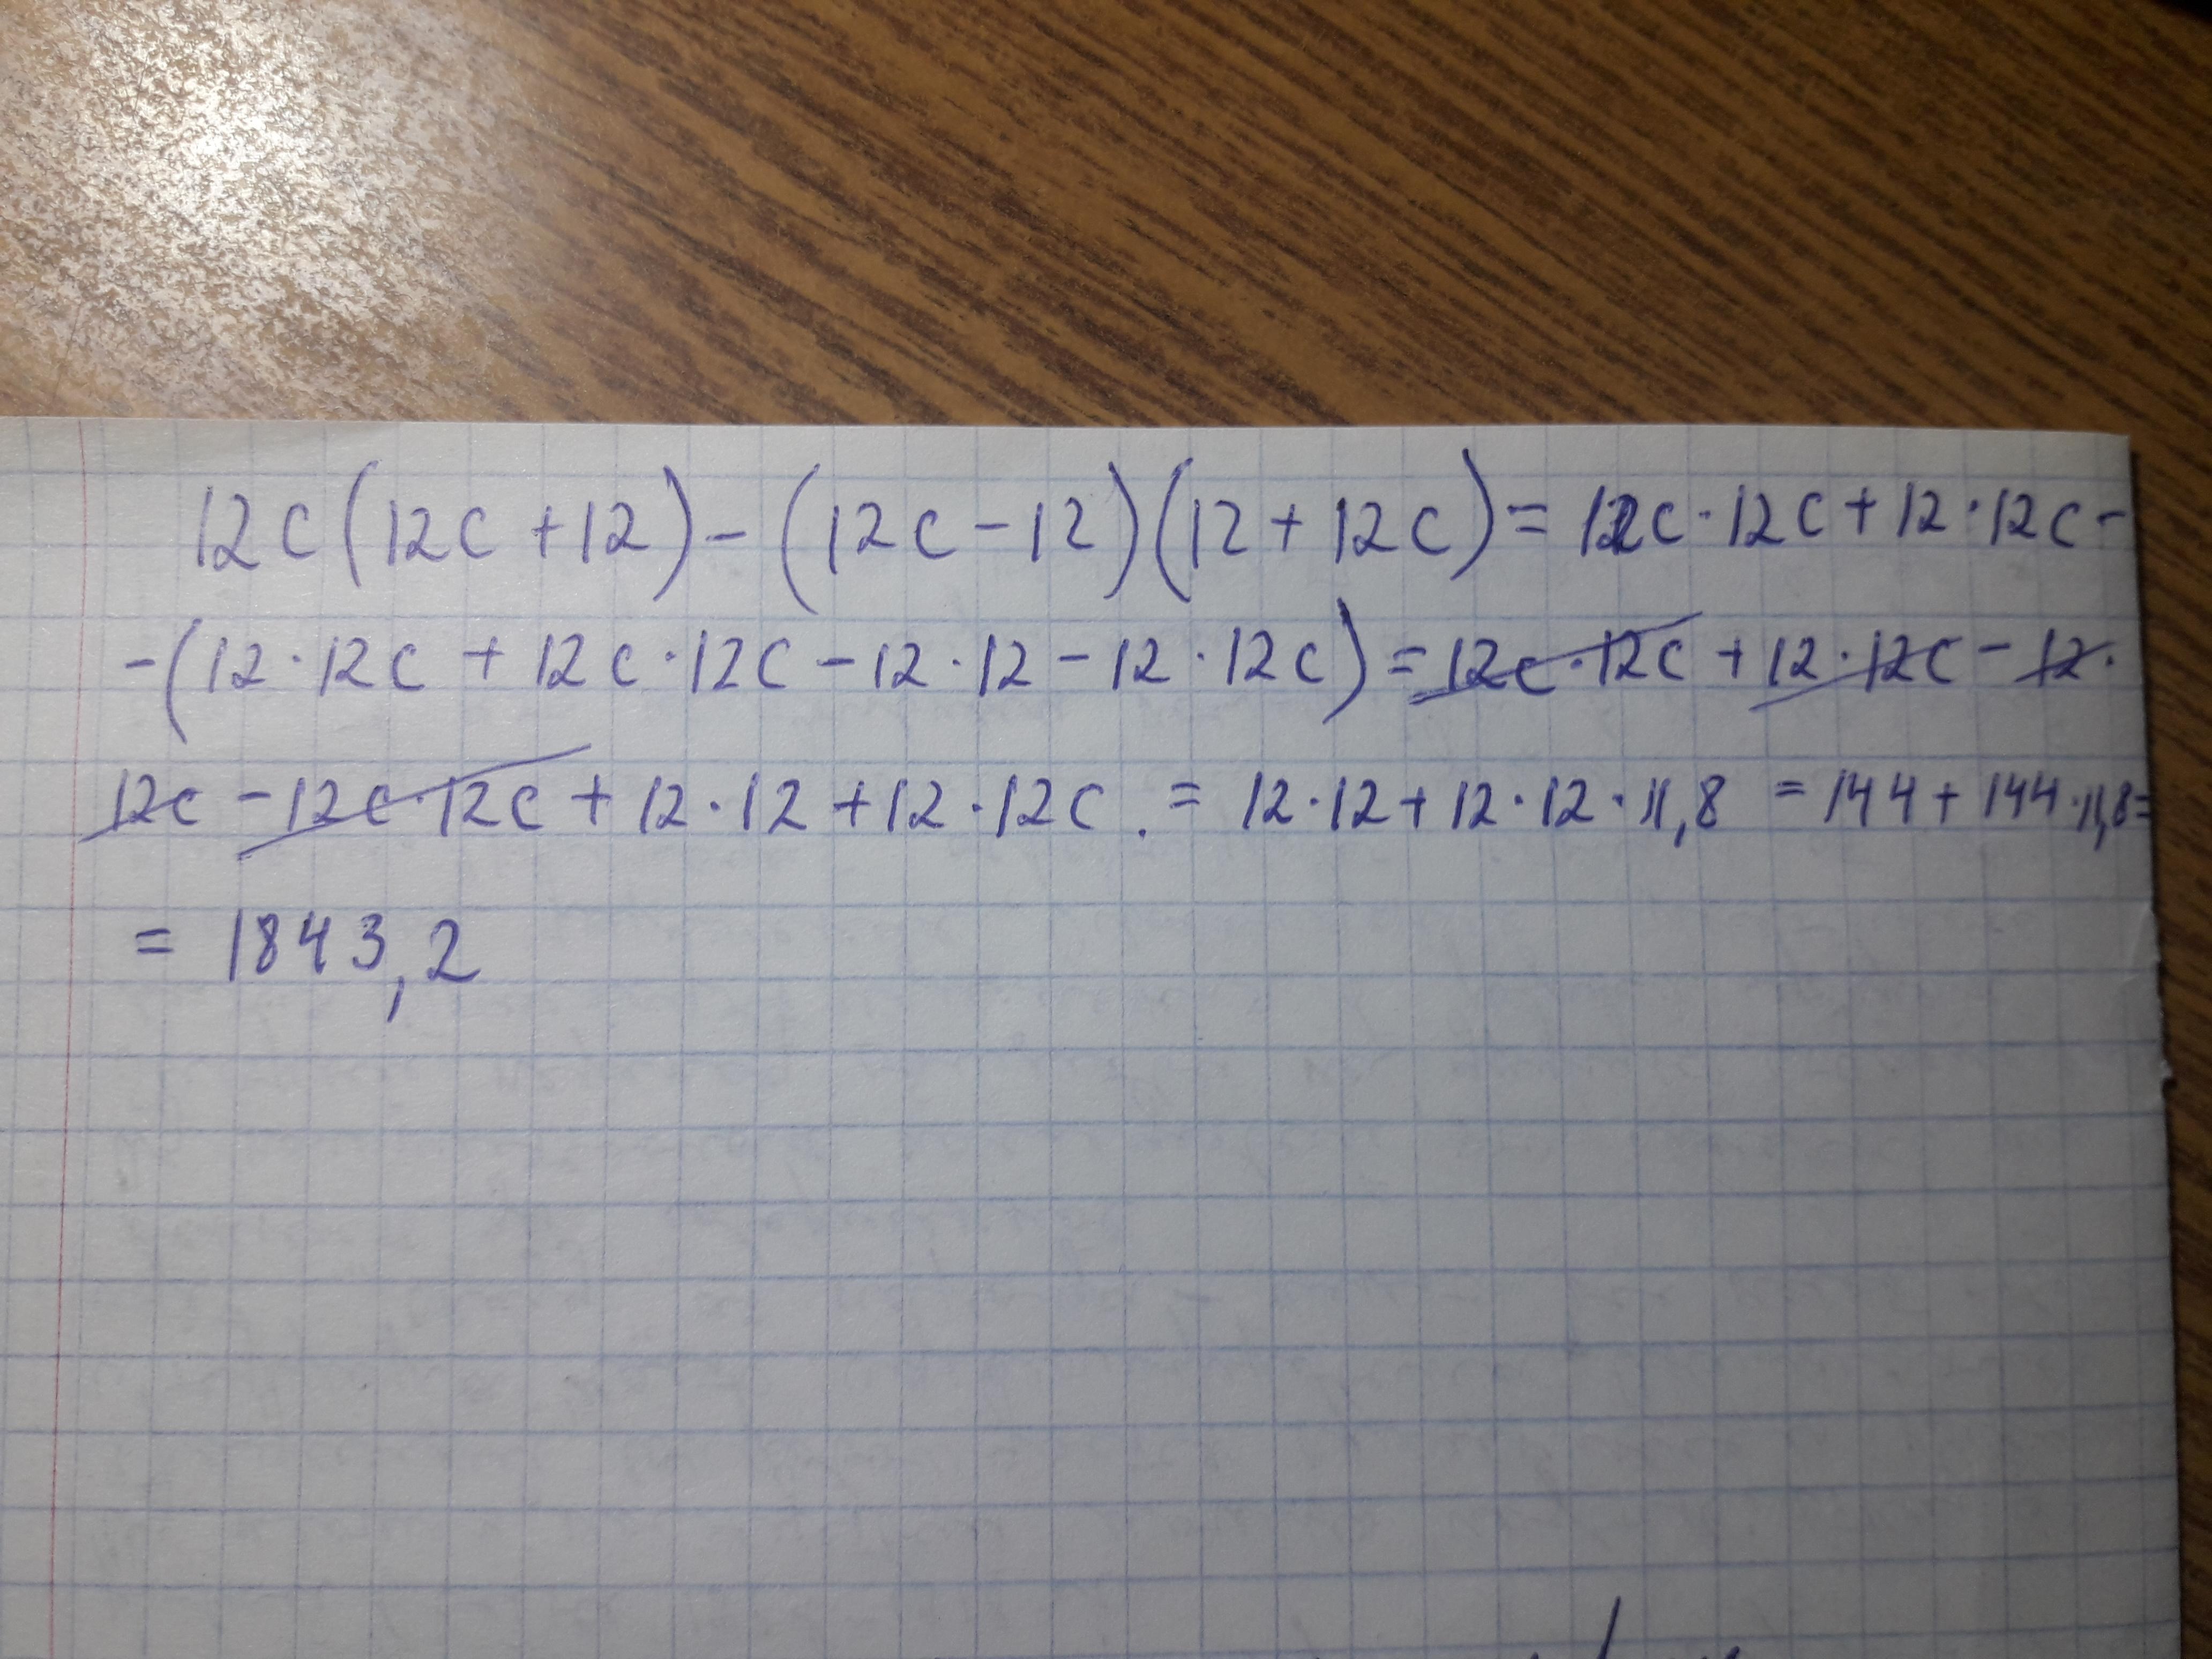 12c(12c+12)-(12c-12)(12+12c)=12c·12c+12·12c-
-(12·12c+12c·12c-12·12-12·12c)=12c·12c+12·12c-12·
12c-12c·12c+12·12+12·12c.=12·12+12·12·11,8=144+144·11,8=
=1843,2